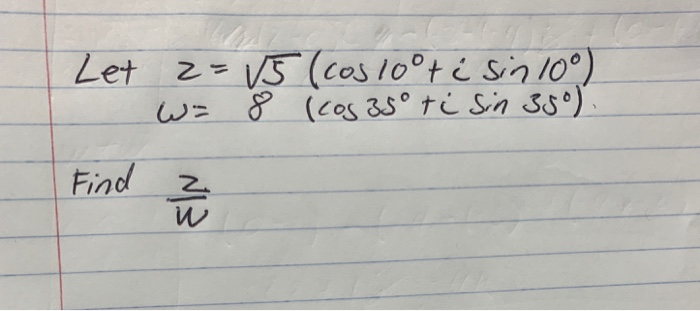 Let z = √5 (cos 10° + i sin 10°)
w = 8 (cos 35° + i sin 35°).
Find z/w